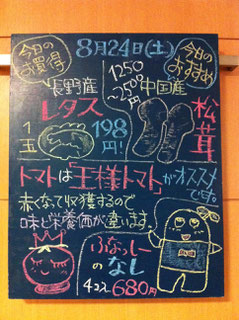 今日のお買得
8月24日(土)
今日のおすすめ
長野産
レタス
1玉
198円!
1250
~2500円
中国産
松茸
トマトは「王様トマト」がオススメです。
赤くなって収穫するので
味と栄養価が違います。
ふなっしー
のなし
4コ入 680円